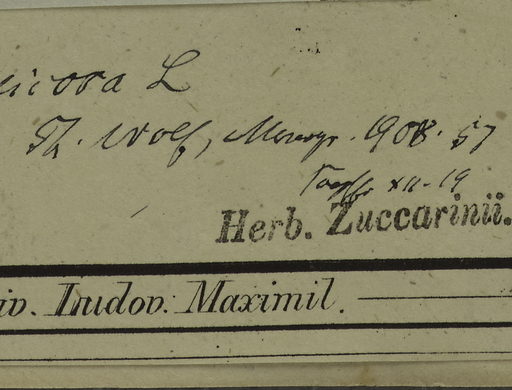 icosa L
Th. Wolf, Monogr. 908. 57
XII-19
Herb. Zuccarinii.
iv. Ludov. Maximil.